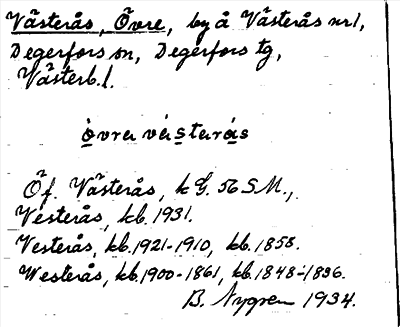 Västerås, Övre, by å Västerås nr 1,
Degerfors sn, Degerfors tg,
Västerb. l.
òvra vàsterás
Öf. Västerås, k G. 56 S.M.,
Vesterås, kb. 1931.
Vesterås, kb. 1921-1910, kb. 1858.
Westerås, kb. 1900-1861, kb. 1848-1836.
B. Nygren 1934.